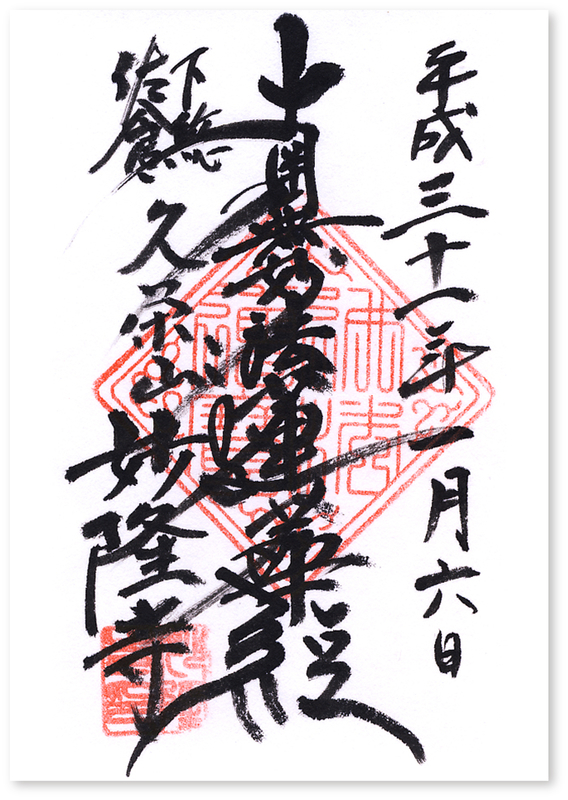 平成三十一年一月六日
南無妙法蓮華経
下総
佐倉
久栄山
妙隆寺